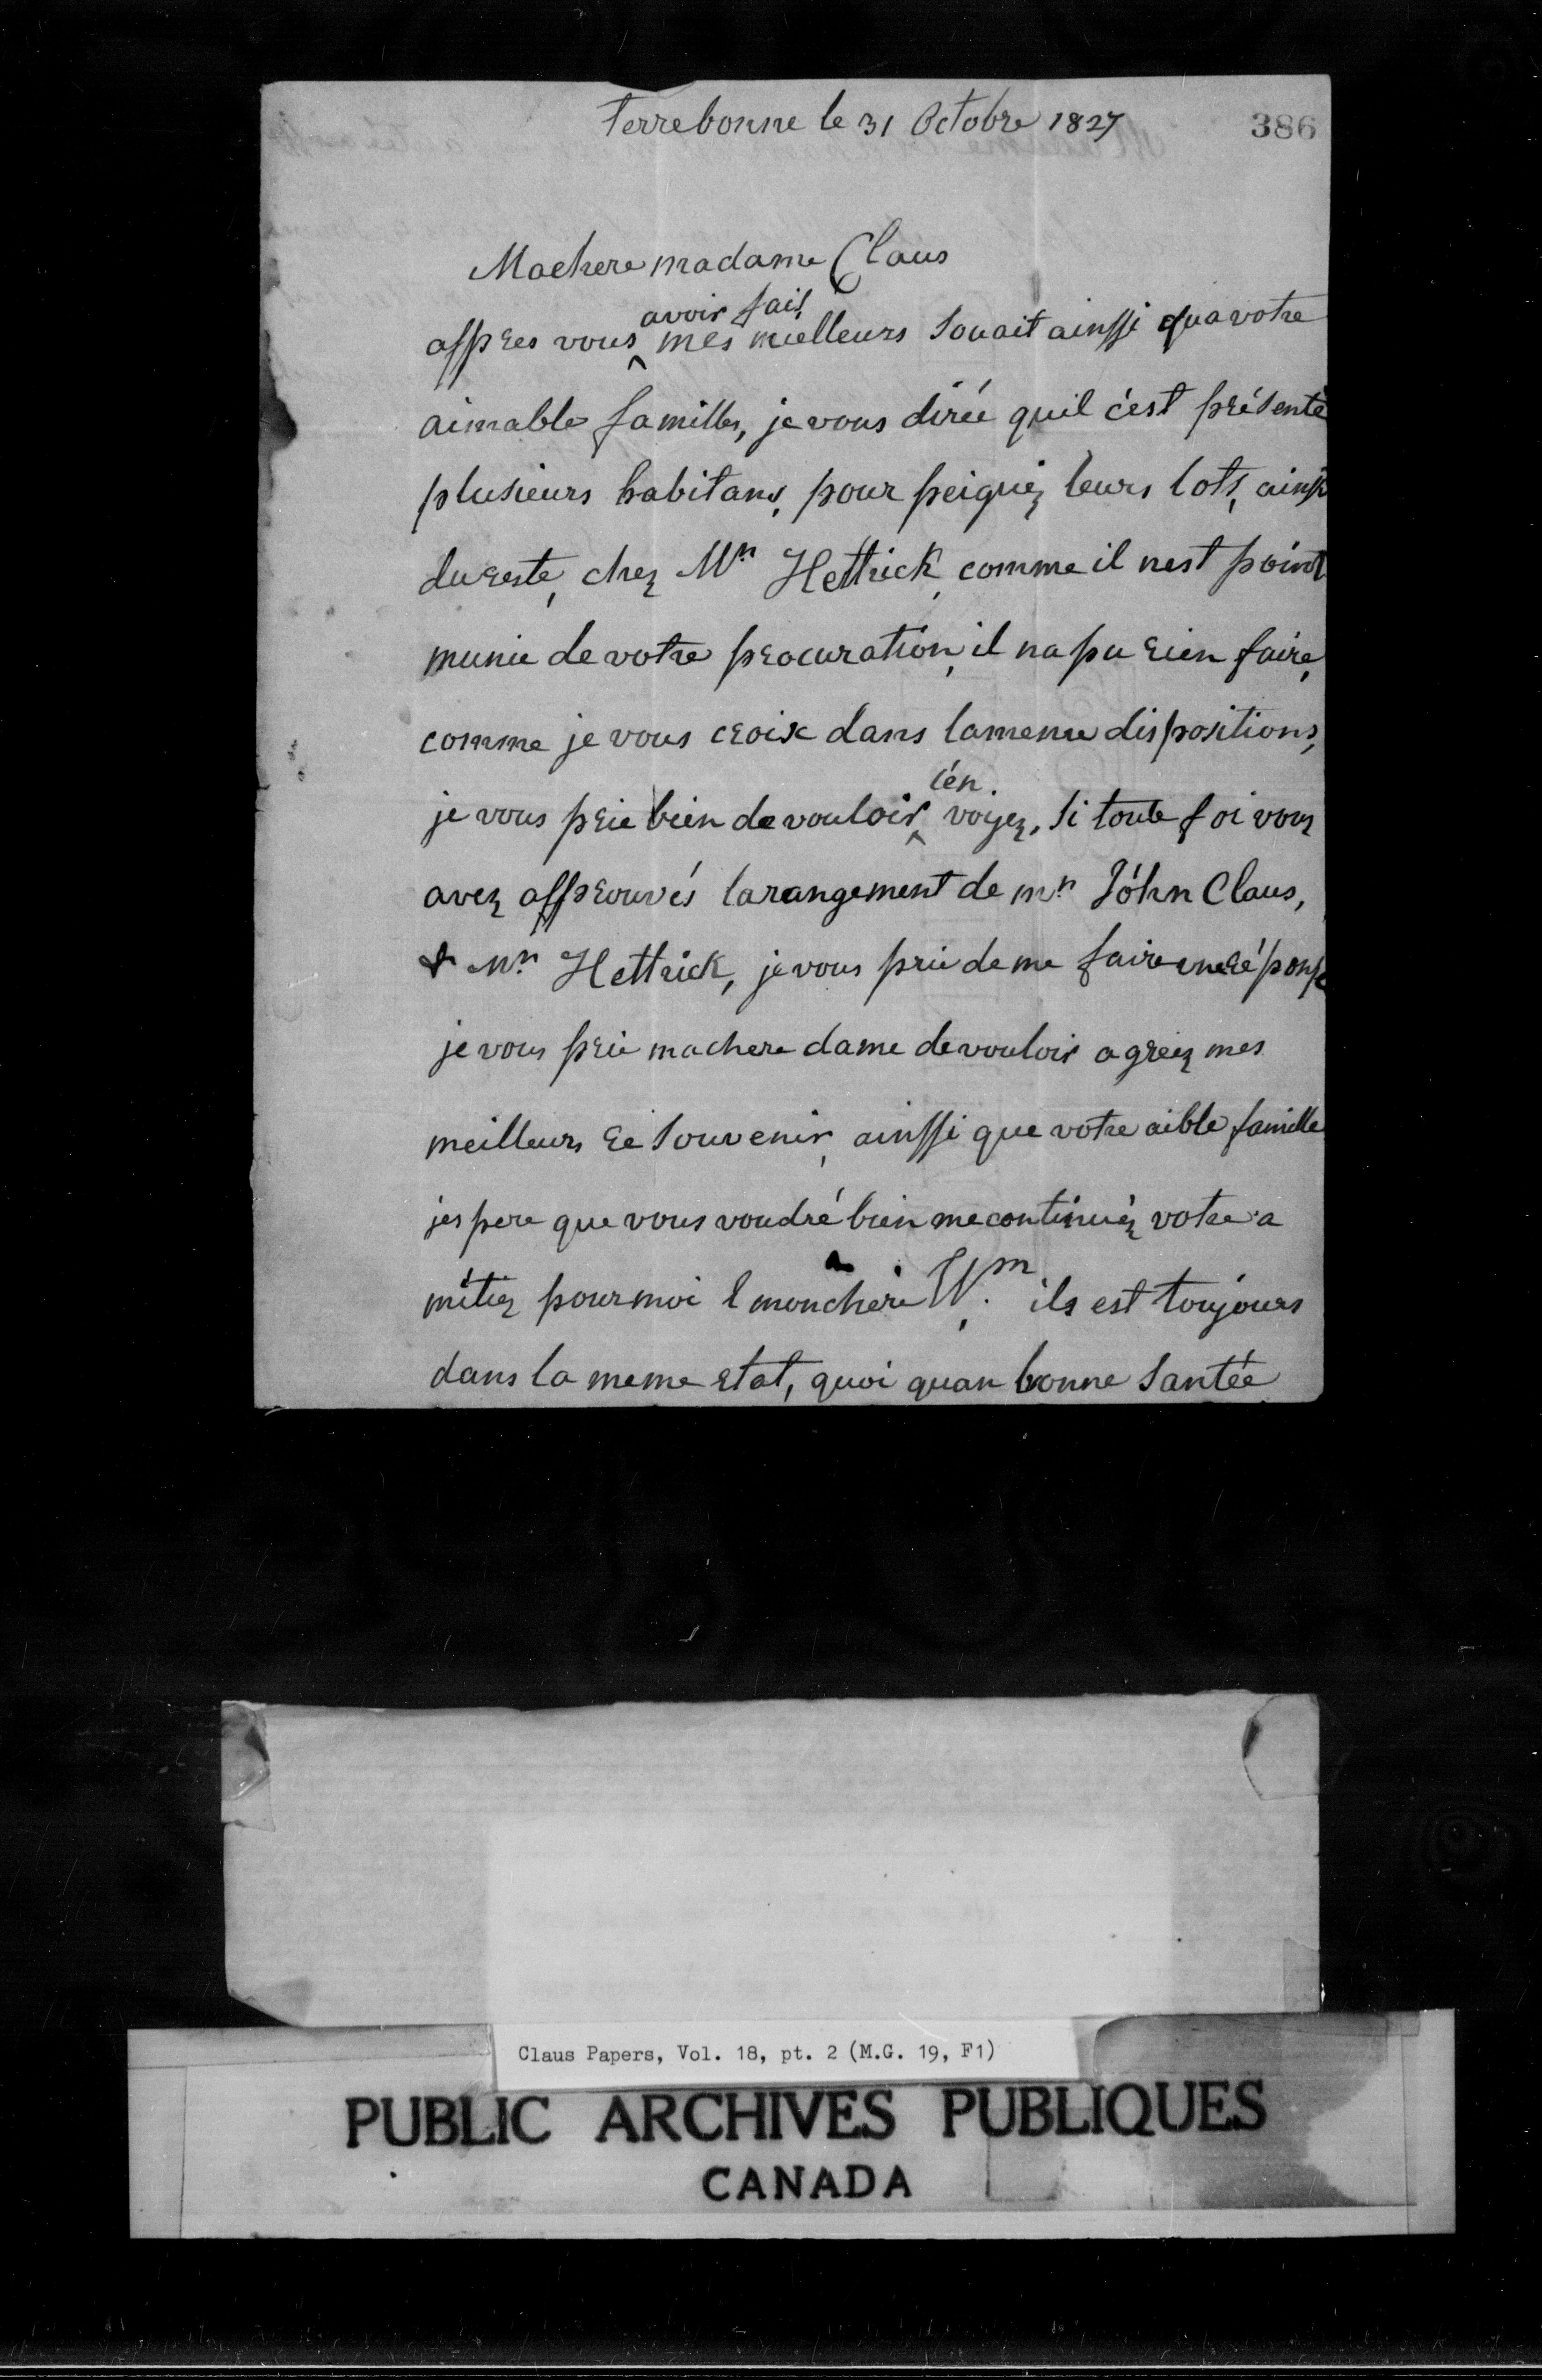 Terrebonne le 31 Octobre 1827
386
Machere madame Claus
appres vous avoir fait mes meilleurs Souait ainssi qua votre
aimable familles, je vous dirée quil c'est présenté
plusieurs habitans, pour peiguiez leurs lots, ainsi
dureste, chez Mr Hettrick, comme il nest point
munie de votre procuration, il na pu rien faire,
comme je vous croix dans lameme dispositions,
je vous prie bien de vouloir l'én voyez, Si toute foi vous
avez approuvés larangement de mr. Jóhn Claus,
& Mr. Hettrick, je vous prie de me faire une réponse
je vous prie machere dame de vouloir agreez mes
meilleurs re Souvenir, ainssi que votre aible famille
jespere que vous voudré bien me continuéz votre a
mitiez pour moi & moncheri Wm. ils est toujours
dans la meme etat, quoi quan bonne Santée
Claus Papers, Vol. 18, pt. 2 (M.G. 19, F1)
PUBLIC ARCHIVES PUBLIQUES
CANADA